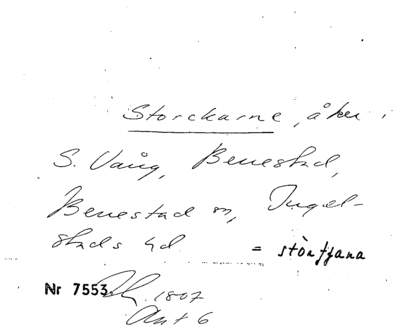 Storckarne, åker i
S. Vång, Benestad,
Benestad sn, Ingel-
stads hd = störtjana
Nr 7553 1807
Akt 6